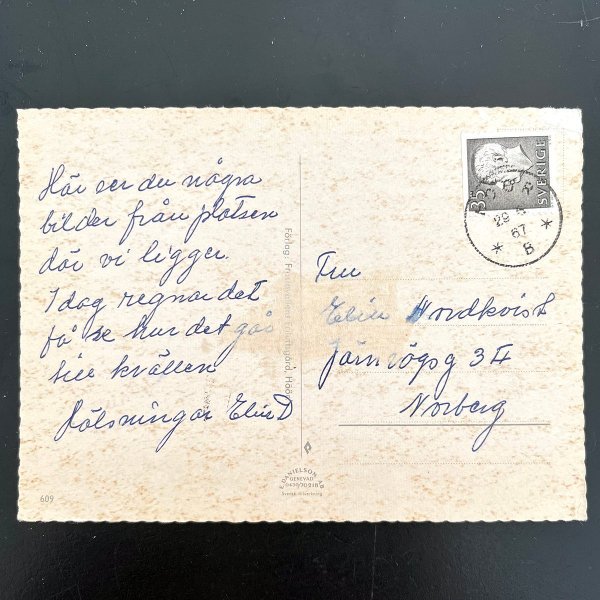 Här ser du några
bilder från platsen
där vi ligger.
Idag regnar det
få se hur det går
till kvällen
Hälsningar Elin D
609
Förlag:
E. DANIELSON
GENEVAD
Svensk tillverkning
35
SVERIGE
29
67
* 8 *
Fru
Elin Nordkvist
Järnvägsg 3 A
Norberg